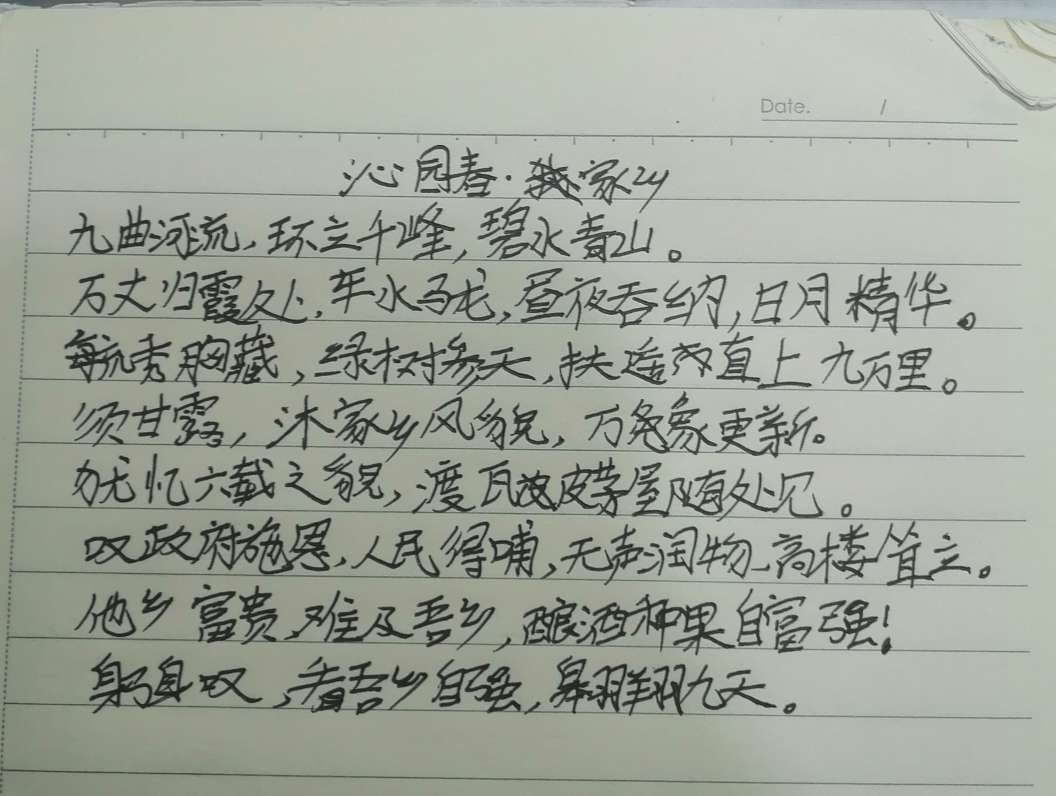 Date. /
沁园春·我家乡
九曲河流,环立千峰,碧水青山。
万丈归霞处,车水马龙,昼夜吞纳,日月精华。
秀胸藏,绿树参天,扶遥直上九万里。
须甘露,沐家乡风貌,万象更新。
忧忆六载之貌,渡瓦皮茅屋随处见。
叹政府施恩,人民得哺,无声润物,高楼耸立。
他乡富贵,难及吾乡,酿酒种果自富强!
躬身叹,看吾乡自强,翱翔九天。